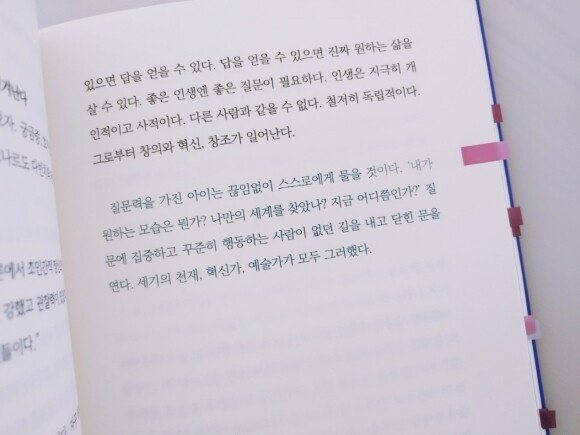 있으면 답을 얻을 수 있다. 답을 얻을 수 있으면 진짜 원하는 삶을
살 수 있다. 좋은 인생엔 좋은 질문이 필요하다. 인생은 지극히 개
인적이고 사적이다. 다른 사람과 같을 수 없다. 철저히 독립적이다.
그로부터 창의와 혁신, 창조가 일어난다.
질문력을 가진 아이는 끊임없이 스스로에게 물을 것이다. '내가
원하는 모습은 뭔가? 나만의 세계를 찾았나? 지금 어디쯤인가?' 질
문에 집중하고 꾸준히 행동하는 사람이 없던 길을 내고 닫힌 문을
연다. 세기의 천재, 혁신가, 예술가가 모두 그러했다.
강했고 관찰력이
들이다."